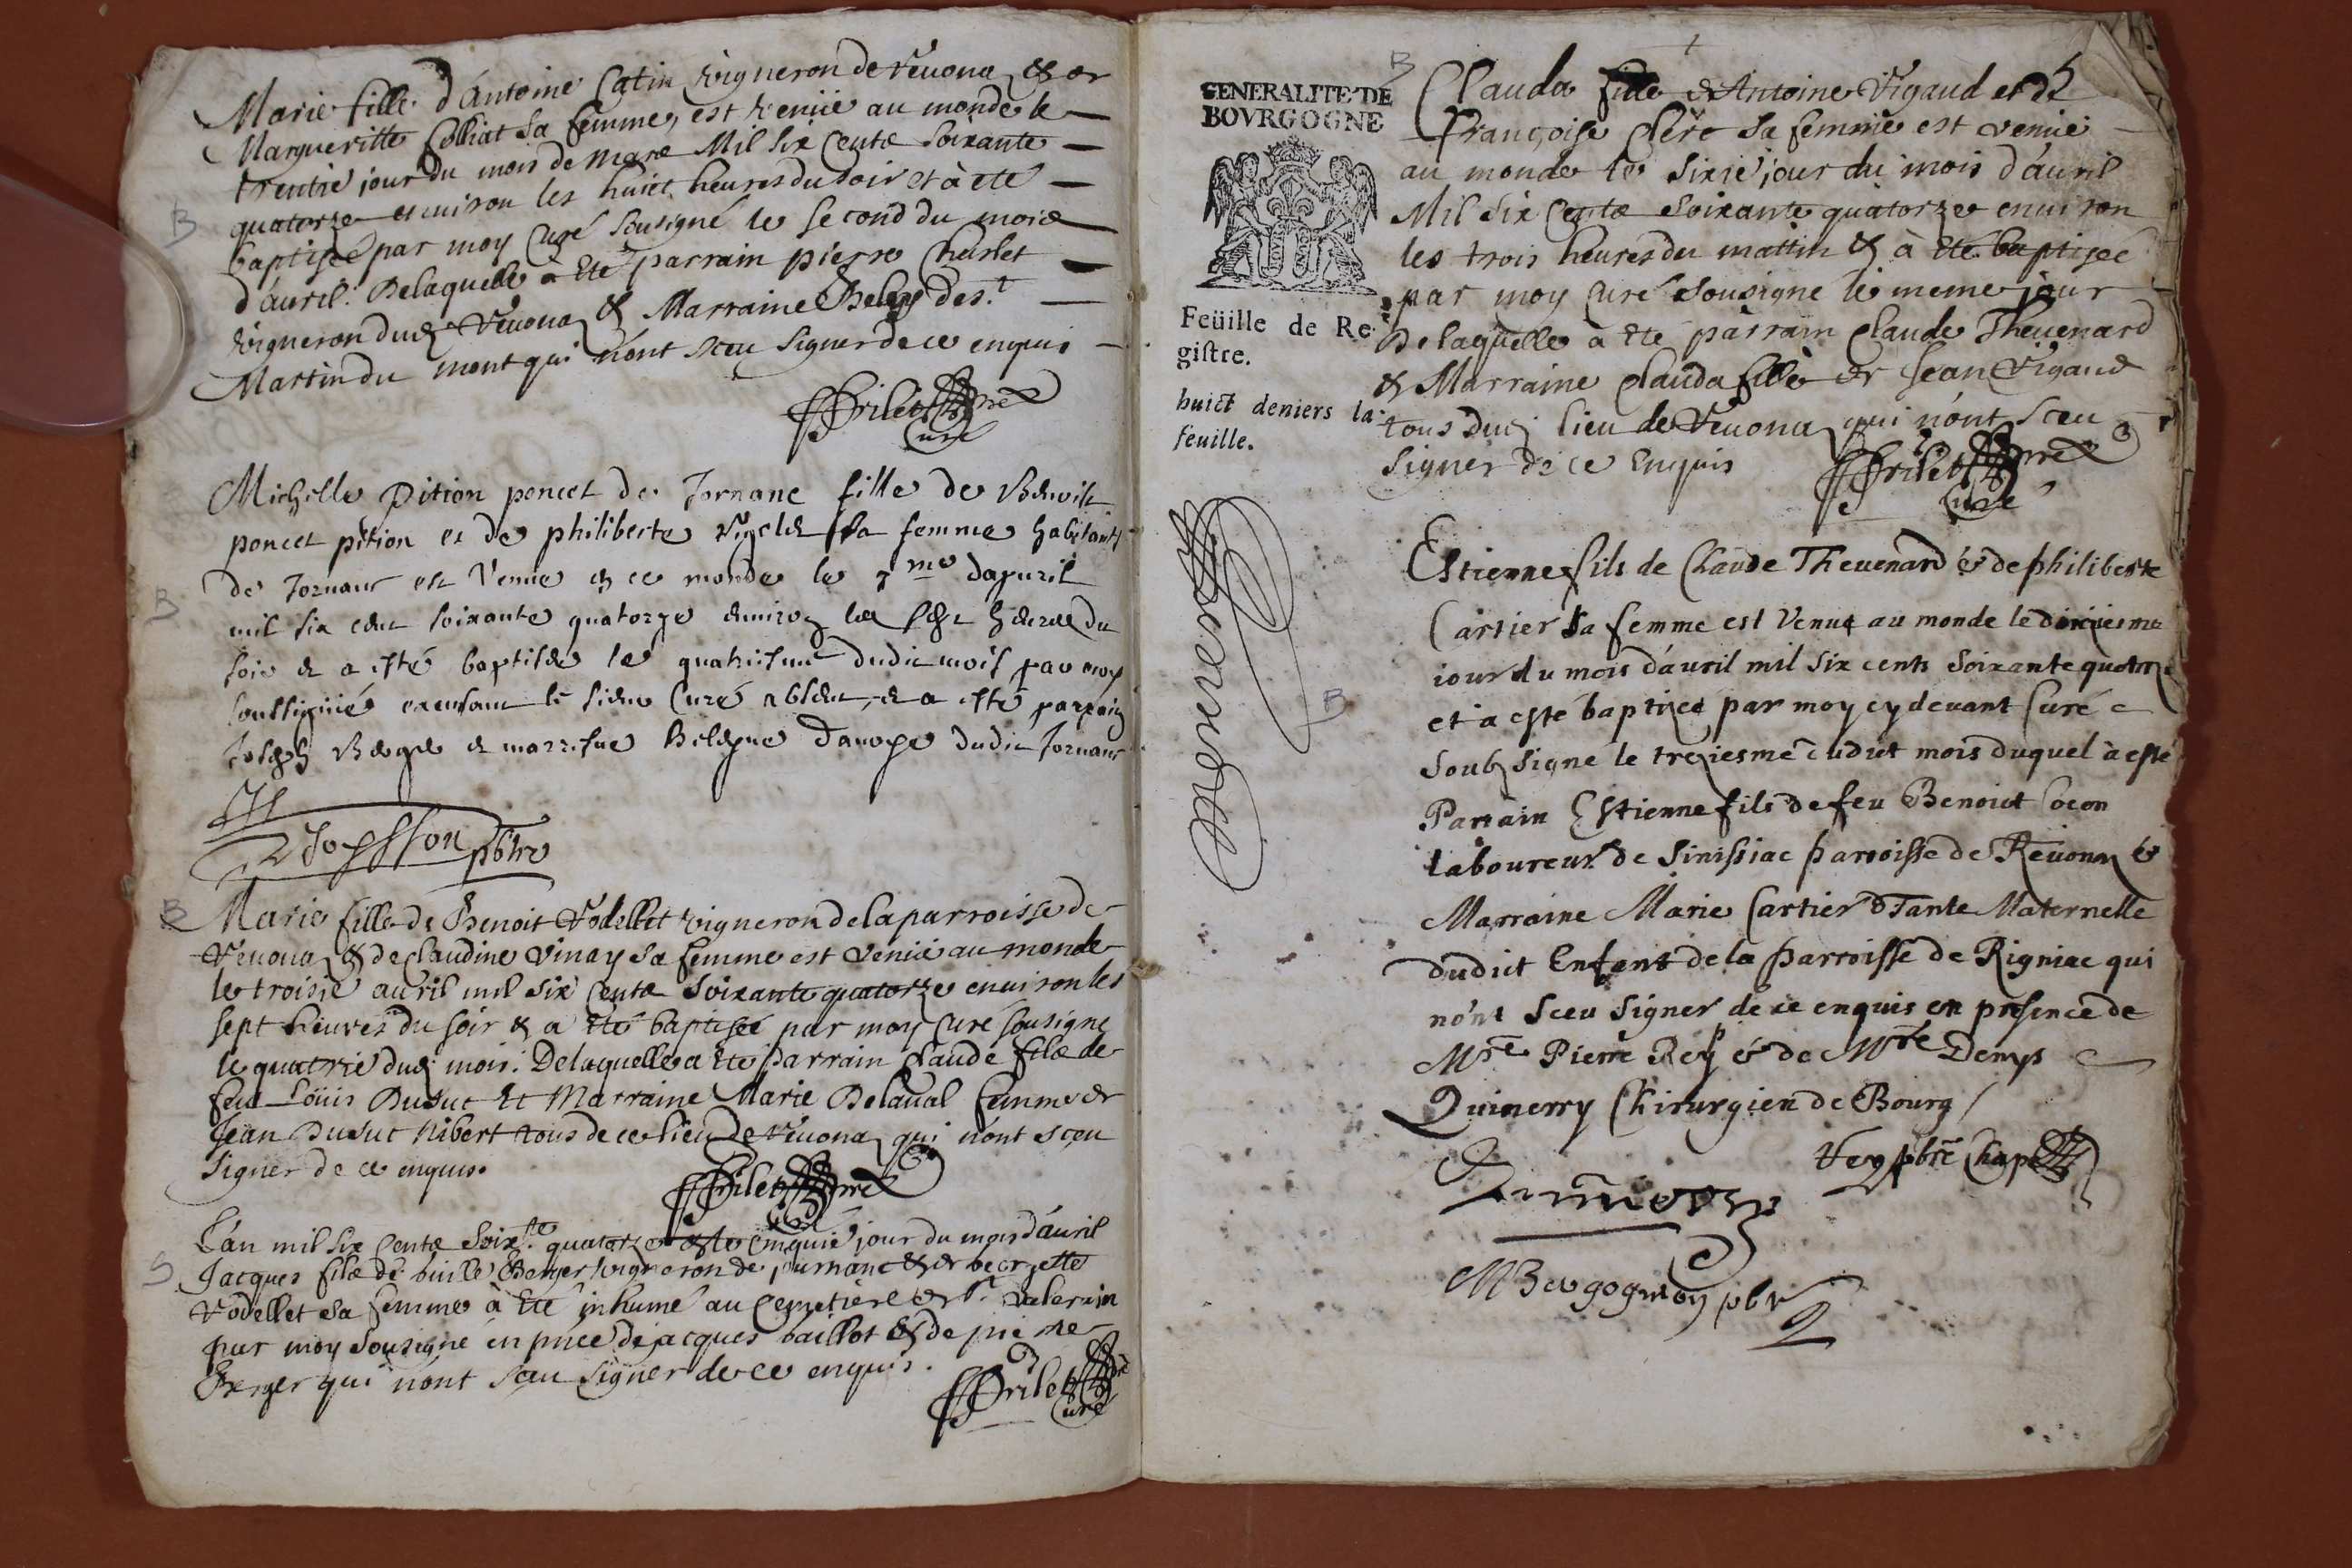 Marie fille d'Antoine Catin vigneron de Reuona & de
Margueritte Colliat sa femme, est venüe au monde le
trentie jour du mois de mars Mil six Cents soixante
quatorze enuiron les huict heures du soir et à été
baptisée par moy Curé sousigné le second du mois
d'auril. De laquelle à été parrain pierre Charlet
vigneron dud Reuona & Marraine
Martin du mont qui n'ont sceu signer de ce enquis
Brilet pre
Curé
Michelle Pition poncet de Jornanc fille de Benoist
poncet pition et de philiberte sa femme habitants
de Jornanc est venue en ce monde le me dapuril
mil six cent soixante quatorze enuiron les sept heures du
soir & a esté baptisée le quatriesme dudit mois par moy
soussigné le sieur Curé absent, & a esté parrain
Joseph & marraine dudit Jornanc
Joysson pbtre
Marie fille de Benoit Vodellet vigneron de la parroisse de
Reuona & de Claudine Vinay sa femme est venüe au monde
le troisie auril mil six Cents soixante quatorze enuiron les
sept heures du soir & a été baptisée par moy Curé sousigné
le quatrie dud mois. De laquelle a été parrain Claude fils de
feu Loüis Dusuc et Marraine Marie Delaual femme de
Jean Dusuc Nibert tous de ce lieu de Reuona qui n'ont sceu
signer de ce enquis.
Brilet pre
Curé
L'an mil six Cents soixte quatorze & le cinquie jour du mois d'auril
Jacques fils de Berger vigneron de journanc & de
Vodellet sa femme à été inhumé au Cemetiere de St Valerain
par moy sousigné en pnce de jacques baillot & de pierre
Berger qui n'ont sceu signer de ce enquis.
Brilet pre
Curé
GENERALITE DE
BOVRGOGNE
Feüille de Re-
gistre.
huict deniers la
feuille.
Clauda fille d'Antoine Vigaud et de
Françoise Clerc sa femme est venüe
au monde le sixie jour du mois d'auril
Mil six Cents soixante quatorze enuiron
les trois heures du mattin & à été baptisée
par moy Curé sousigné le meme jour
De laquelle à été parrain Claude Theuenard
& Marraine Clauda fille de Jean Vigaud
tous dud lieu de Reuona qui n'ont sceu
signer de ce Enquis
Brilet pre
Curé
Estienne fils de Claude Theuenard & de philiberte
Cartier sa femme est Venue au monde le
iour du mois d'auril mil six cents soixante quatorze
et a esté baptizé par moy cy deuant Curé
soubsigné le treziesme dudict mois duquel à esté
Parrain Estienne fils de feu Benoict Cocon
laboureur de Sinissiac parroisse de Reuona &
Marraine Marie Cartier Tante Maternelle
dudict Enfant de la parroisse de Rigniac qui
n'ont sceu signer de ce enquis en presence de
Mre Pierre Rey & de Mre Denys
Quinerry Chirurgien de Bourg /
Rey pbre
pbr